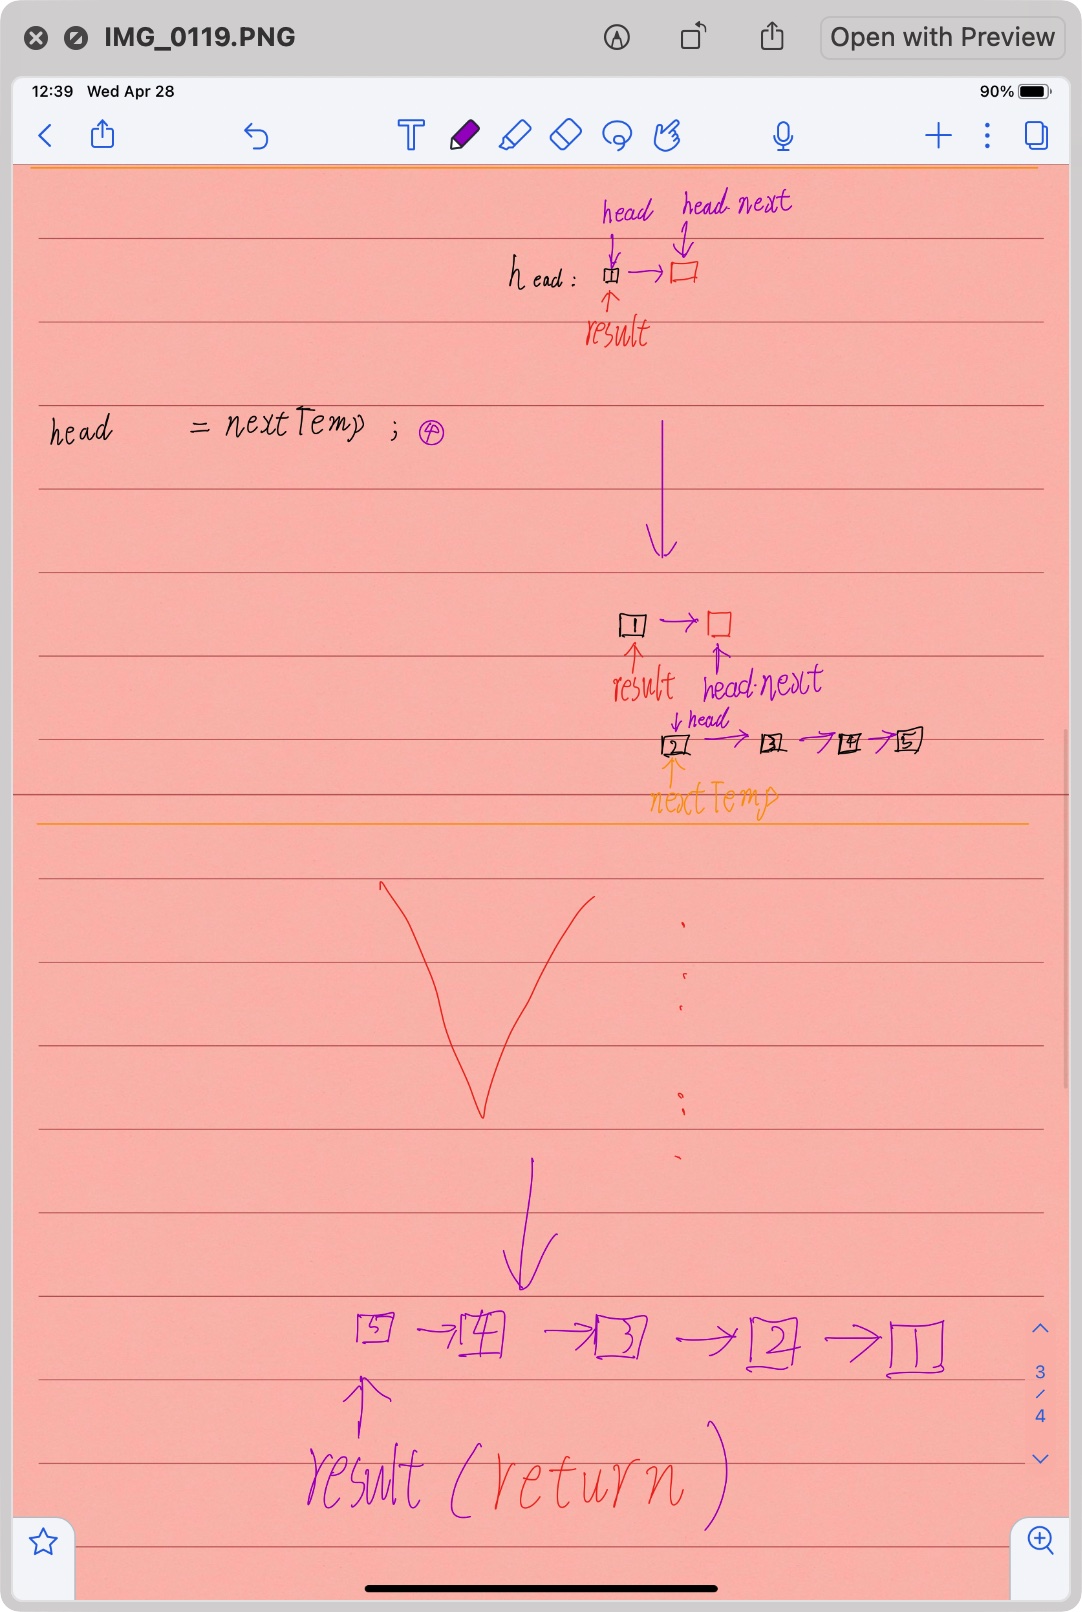 IMG_0119.PNG
Open with Preview
12:39 Wed Apr 28
90%
head head.next
head: 1
result
head = nextTemp ; ④
1
result head.next
head
2 3 4 5
nextTemp
5 4 3 2 1
result (return)
3
/
4